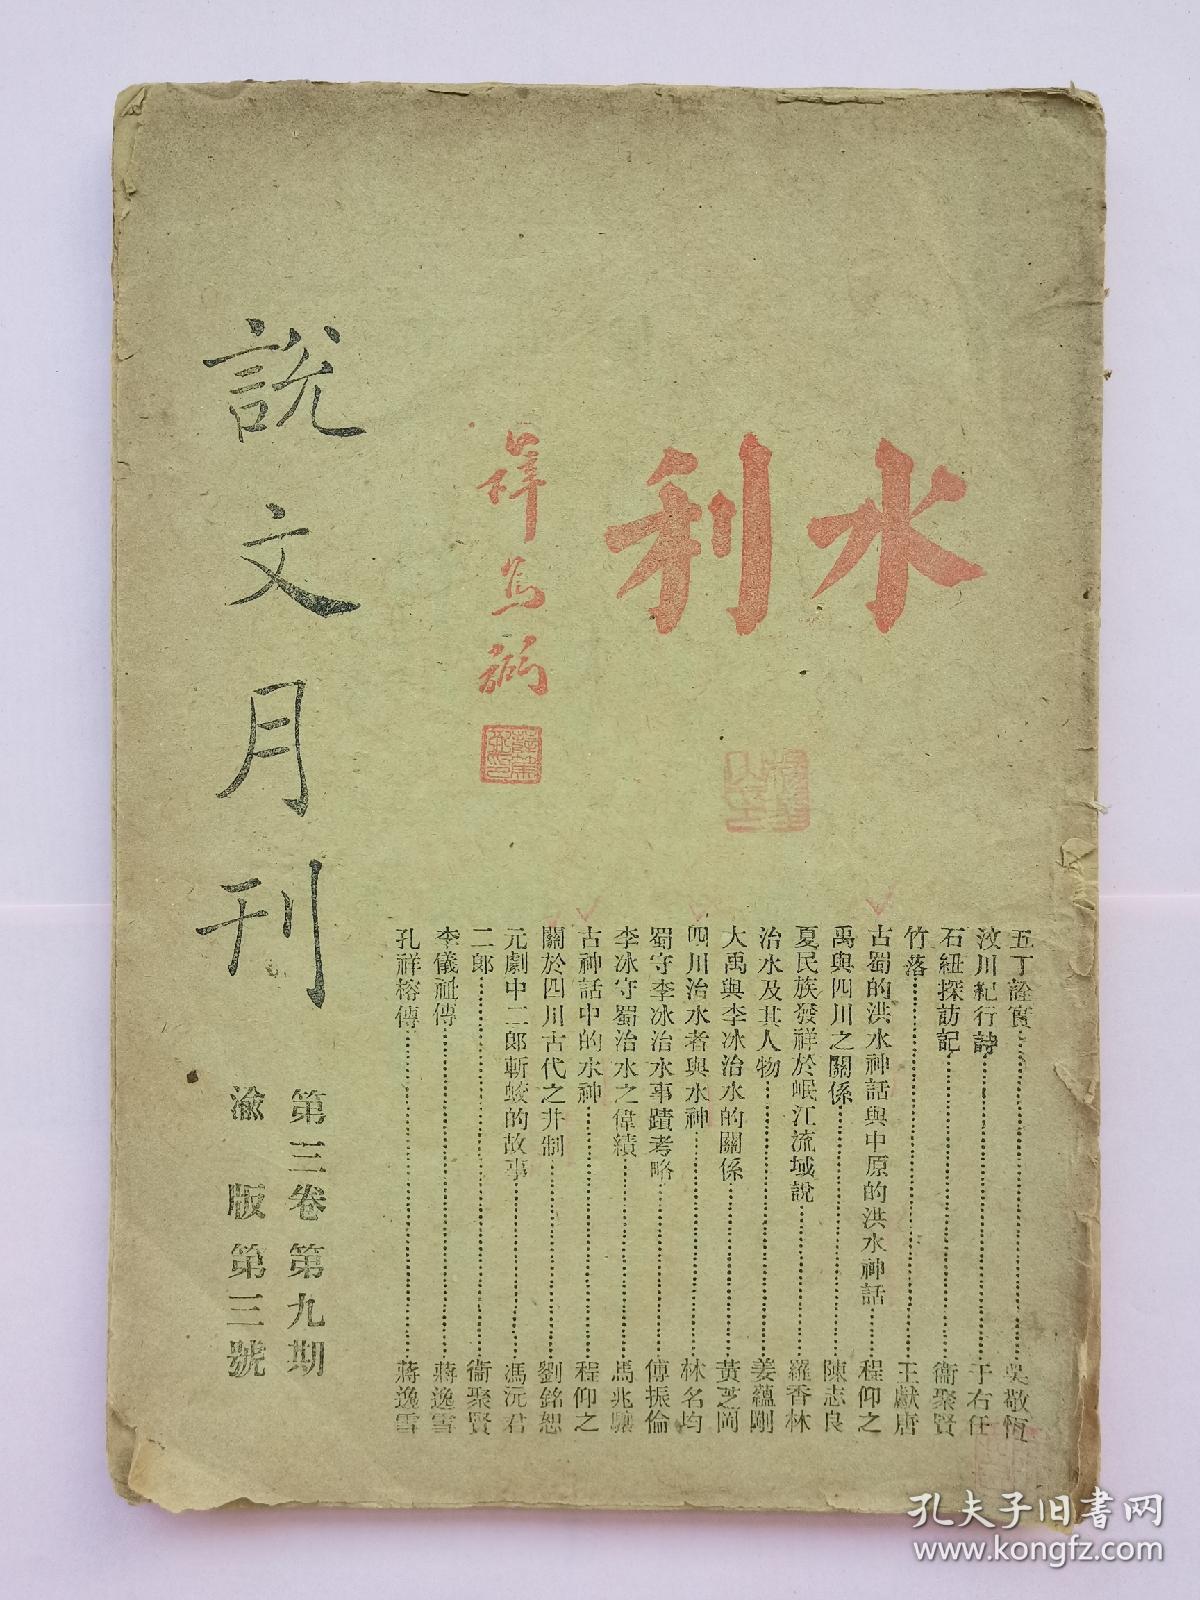 水利
說文月刊
第三卷第九期
渝版第三號
五丁詮實 吳敬恆
汶川紀行詩 于右任
石紐探訪記 衞聚賢
竹落 王獻唐
古蜀的洪水神話與中原的洪水神話 程仰之
禹與四川之關係 陳志良
夏民族發祥於岷江流域說 羅香林
治水及其人物 姜蘊剛
大禹與李冰治水的關係 黃芝岡
四川治水者與水神 林名均
蜀守李冰治水事蹟考略 傅振倫
李冰守蜀治水之偉績 馬兆驤
古神話中的水神 程仰之
關於四川古代之井制 劉銘恕
元劇中二郎斬蛟的故事 馮沅君
二郎 衞聚賢
李儀祉傳 蔣逸雪
孔祥榕傳 蔣逸雪
孔夫子旧書网
www.kongfz.com